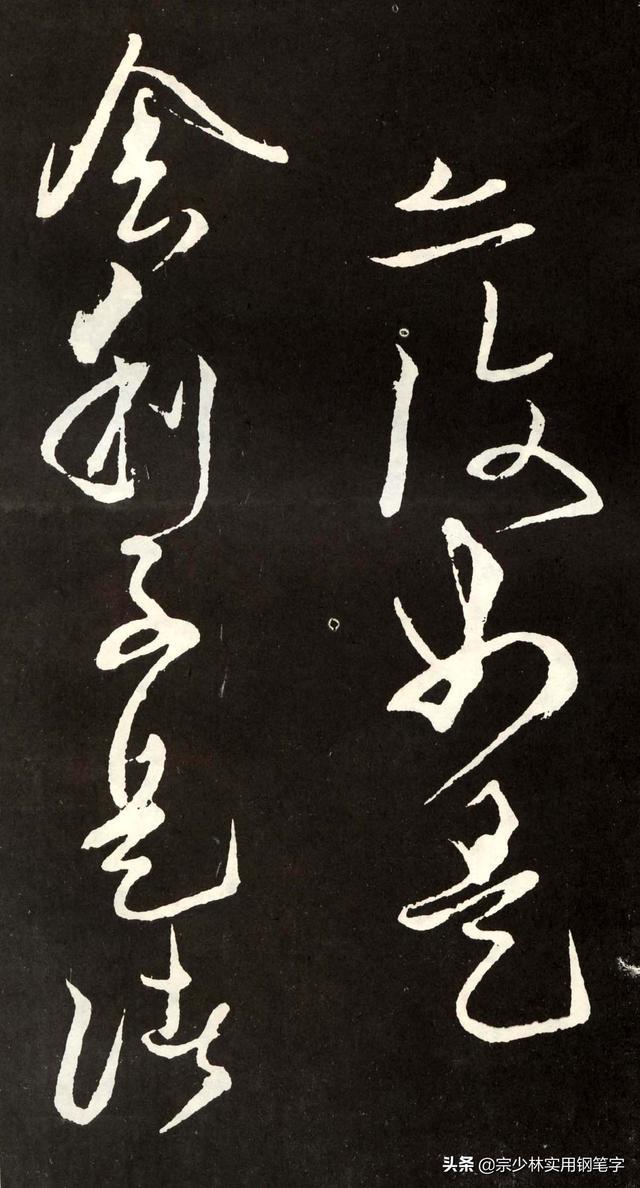 亦復如是
舍利子是諸
头条 @宗少林实用钢笔字